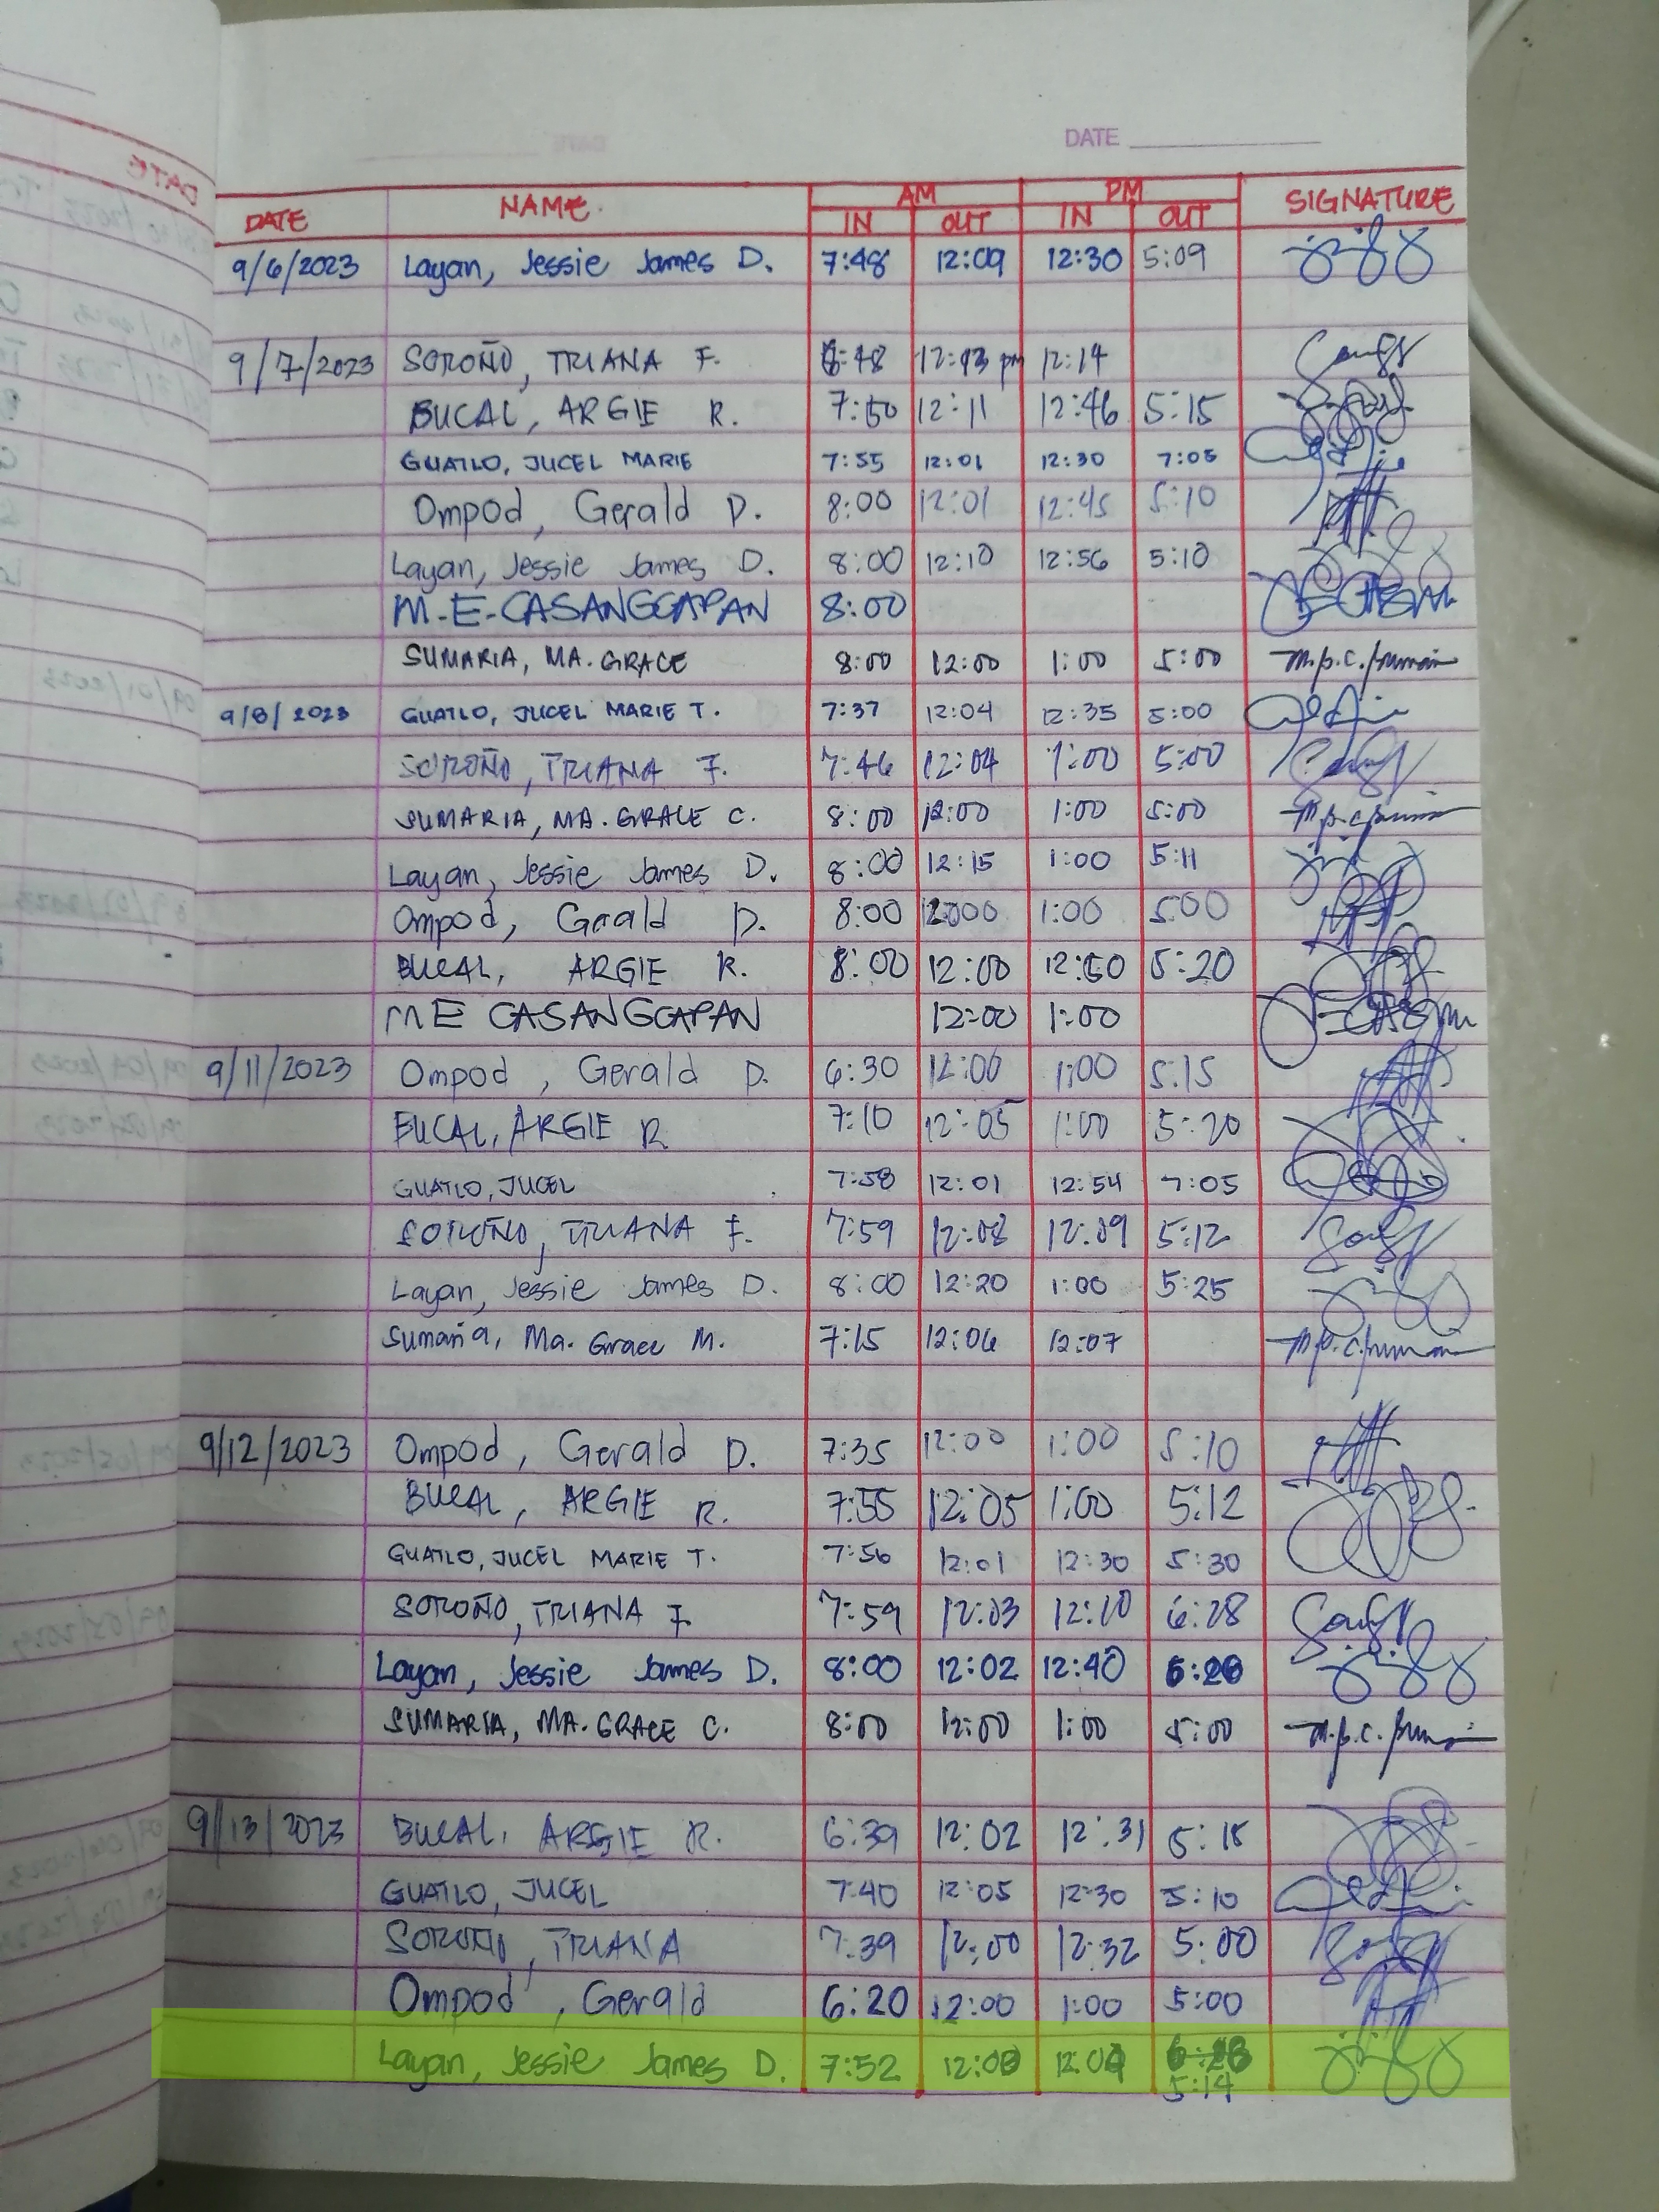 DATE
DATE NAME. AM PM SIGNATURE
IN OUT IN OUT
9/6/2023 Layan, Jessie James D. 7:48 12:09 12:30 5:09
9/7/2023 SOROÑO, TRIANA F. 12:14
BUCAL, ARGIE R. 7:50 12:11 12:46 5:15
GUATLO, JUCEL MARIE 7:55 12:01 12:30 7:05
Ompod, Gerald D. 8:00 12:01 12:45 5:10
Layan, Jessie James D. 8:00 12:10 12:56 5:10
M-E-CASANGGAPAN 8:00
SUMARIA, MA. GRACE 8:00 12:00 1:00 5:00
9/8/2023 GUATLO, JUCEL MARIE T. 7:37 12:04 12:35 5:00
SOROÑO, TRIANA F. 7:46 12:04 1:00 5:00
SUMARIA, MA. GRACE C. 8:00 12:00 1:00 5:00
Layan, Jessie James D. 8:00 12:15 1:00 5:11
Ompod, Gerald D. 8:00 1:00 5:00
BUCAL, ARGIE R. 8:00 12:00 5:20
ME CASANGGAPAN 12:00 1:00
9/11/2023 Ompod, Gerald D. 6:30 12:00 1:00 5:15
BUCAL, ARGIE R 7:10 12:05 1:00 5:20
GUATLO, JUCEL 7:58 12:01 12:54 7:05
SOROÑO, TRIANA F. 7:59 12:08 12:09 5:12
Layan, Jessie James D. 8:00 12:20 1:00 5:25
Sumaria, Ma. Grace M. 7:15 12:06 12:07
9/12/2023 Ompod, Gerald D. 7:35 12:00 1:00 5:10
BUCAL, ARGIE R. 7:55 12:05 1:00 5:12
GUATLO, JUCEL MARIE T. 7:56 12:01 12:30 5:30
SOROÑO, TRIANA F. 7:59 12:03 12:10 6:28
Layan, Jessie James D. 8:00 12:02 12:40
SUMARIA, MA. GRACE C. 8:00 12:00 1:00 5:00
9/13/2023 BUCAL, ARGIE R. 6:39 12:02 12:31 5:15
GUATLO, JUCEL 7:40 12:05 12:30 5:10
SOROÑO, TRIANA 7:39 12:00 12:32 5:00
Ompod, Gerald 6:20 12:00 1:00 5:00
Layan, Jessie James D. 7:52
5:14